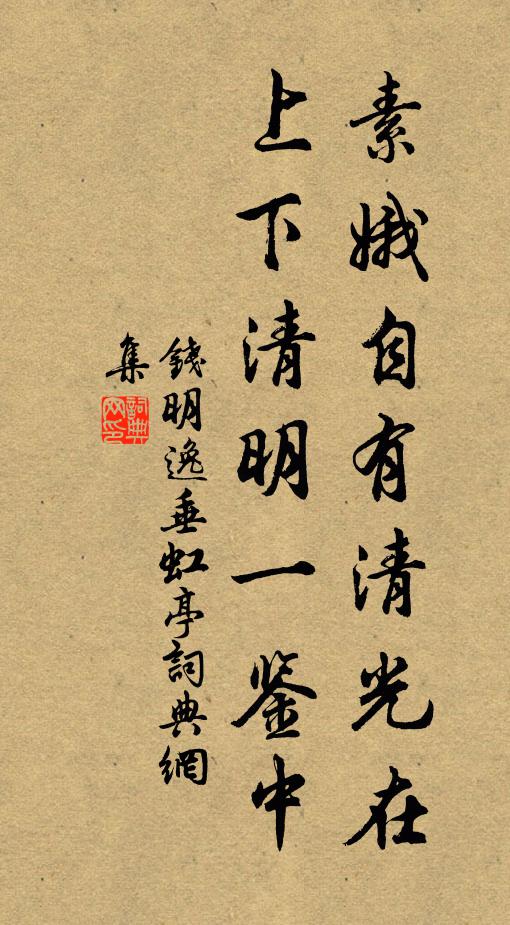 素娥自有清光在
上下清明一鉴中
錢明逸垂虹亭詞典網
集
詞典
网印